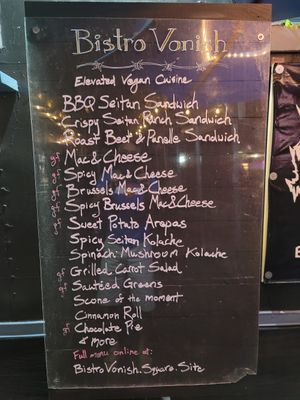 Bistro Vonish
Elevated Vegan Cuisine
BBQ Seitan Sandwich
Crispy Seitan Ranch Sandwich
Roast Beef & Panelle Sandwich
gf Mac & Cheese
gf Spicy Mac & Cheese
gf Brussels Mac & Cheese
gf Spicy Brussels Mac & Cheese
gf Sweet Potato Arepas
Spicy Seitan Kolache
Spinach Mushroom Kolache
gf Grilled Carrot Salad
gf Sautéed Greens
Scone of the moment
Cinnamon Roll
gf Chocolate Pie
& more
Full menu online at:
BistroVonish.Square.Site